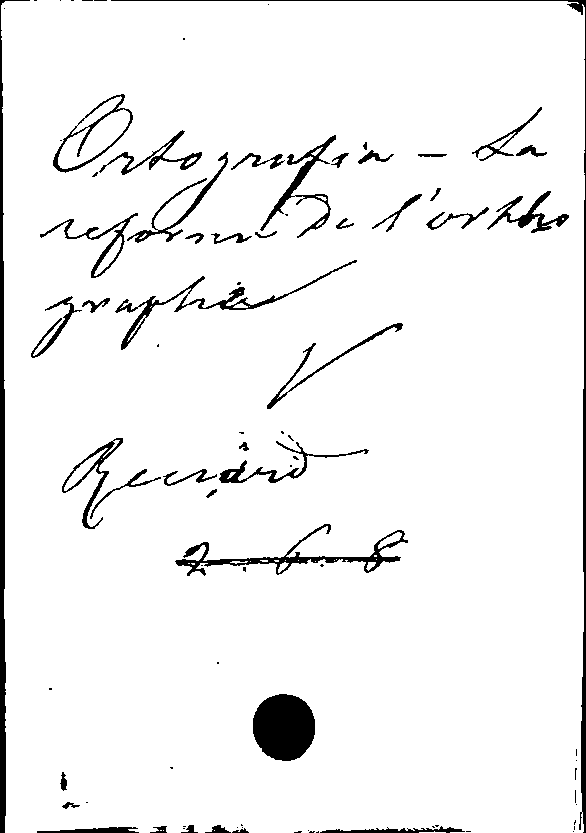 Ortografia – La
reforme De l'ortho
graphie
V
2.6.8